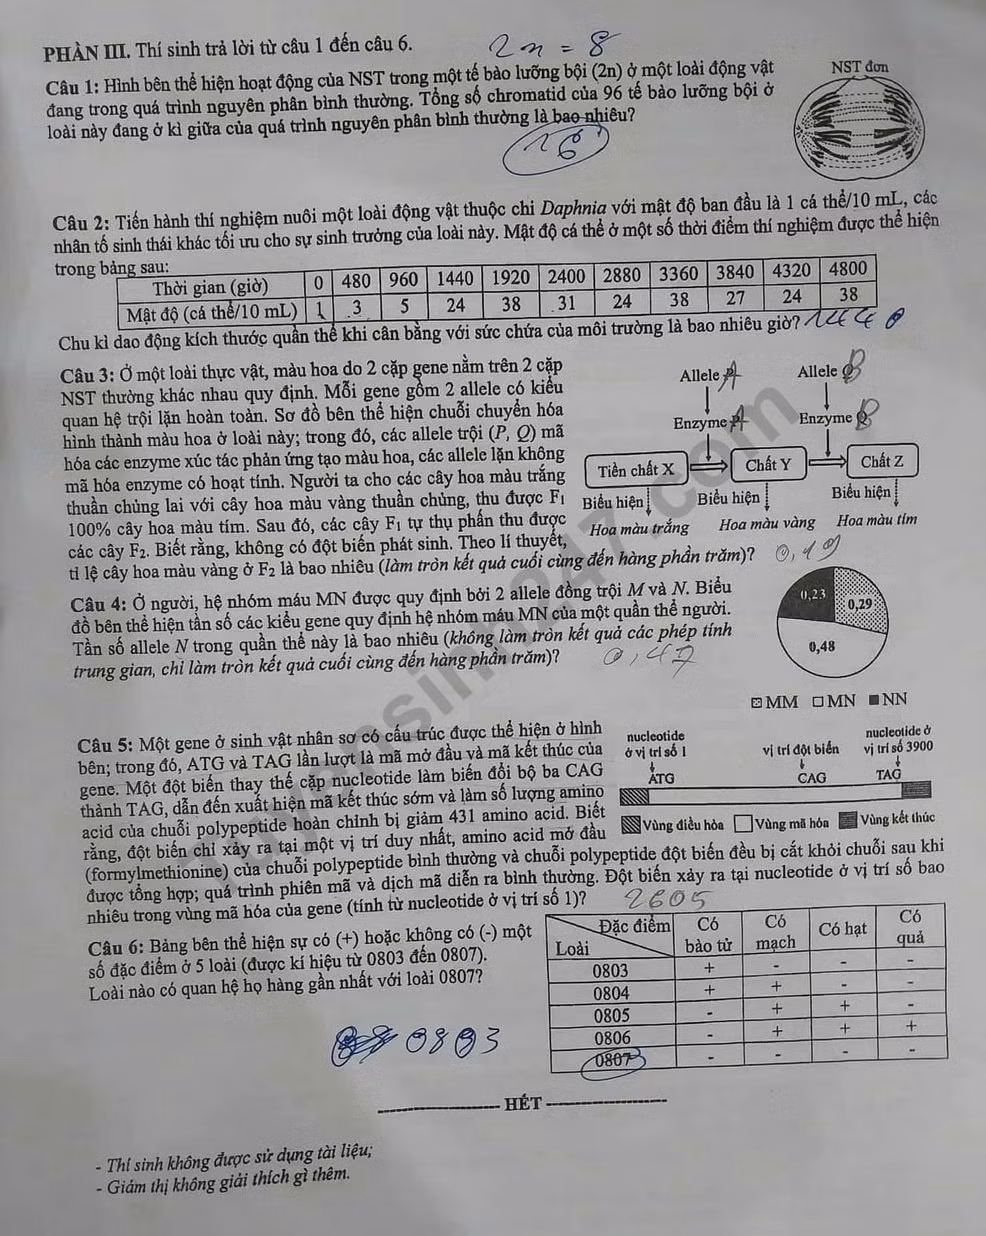 PHẦN III. Thí sinh trả lời từ câu 1 đến câu 6.
2n = 8
Câu 1: Hình bên thể hiện hoạt động của NST trong một tế bào lưỡng bội (2n) ở một loài động vật
đang trong quá trình nguyên phân bình thường. Tổng số chromatid của 96 tế bào lưỡng bội ở
loài này đang ở kì giữa của quá trình nguyên phân bình thường là bao nhiêu?
NST đơn
16
Câu 2: Tiến hành thí nghiệm nuôi một loài động vật thuộc chi Daphnia với mật độ ban đầu là 1 cá thể/10 mL, các
nhân tố sinh thái khác tối ưu cho sự sinh trưởng của loài này. Mật độ cá thể ở một số thời điểm thí nghiệm được thể hiện
trong bảng sau:
Thời gian (giờ) 0 480 960 1440 1920 2400 2880 3360 3840 4320 4800
Mật độ (cá thể/10 mL) 1 3 5 24 38 31 24 38 27 24 38
Chu kì dao động kích thước quần thể khi cân bằng với sức chứa của môi trường là bao nhiêu giờ? 1440
Câu 3: Ở một loài thực vật, màu hoa do 2 cặp gene nằm trên 2 cặp
NST thường khác nhau quy định. Mỗi gene gồm 2 allele có kiểu
quan hệ trội lặn hoàn toàn. Sơ đồ bên thể hiện chuỗi chuyển hóa
hình thành màu hoa ở loài này; trong đó, các allele trội (P, Q) mã
hóa các enzyme xúc tác phản ứng tạo màu hoa, các allele lặn không
mã hóa enzyme có hoạt tính. Người ta cho các cây hoa màu trắng
thuần chủng lai với cây hoa màu vàng thuần chủng, thu được F1
100% cây hoa màu tím. Sau đó, các cây F1 tự thụ phấn thu được
các cây F2. Biết rằng, không có đột biến phát sinh. Theo lí thuyết,
tỉ lệ cây hoa màu vàng ở F2 là bao nhiêu (làm tròn kết quả cuối cùng đến hàng phần trăm)? 0,19
Allele A
Allele B
Enzyme A
Enzyme B
Tiền chất X
Chất Y
Chất Z
Biểu hiện
Biểu hiện
Biểu hiện
Hoa màu trắng
Hoa màu vàng
Hoa màu tím
Câu 4: Ở người, hệ nhóm máu MN được quy định bởi 2 allele đồng trội M và N. Biểu
đồ bên thể hiện tần số các kiểu gene quy định hệ nhóm máu MN của một quần thể người.
Tần số allele N trong quần thể này là bao nhiêu (không làm tròn kết quả các phép tính
trung gian, chỉ làm tròn kết quả cuối cùng đến hàng phần trăm)? 0,47
0,23
0,29
0,48
MM MN NN
Câu 5: Một gene ở sinh vật nhân sơ có cấu trúc được thể hiện ở hình
bên; trong đó, ATG và TAG lần lượt là mã mở đầu và mã kết thúc của
gene. Một đột biến thay thế cặp nucleotide làm biến đổi bộ ba CAG
thành TAG, dẫn đến xuất hiện mã kết thúc sớm và làm số lượng amino
acid của chuỗi polypeptide hoàn chỉnh bị giảm 431 amino acid. Biết
rằng, đột biến chỉ xảy ra tại một vị trí duy nhất, amino acid mở đầu
(formylmethionine) của chuỗi polypeptide bình thường và chuỗi polypeptide đột biến đều bị cắt khỏi chuỗi sau khi
được tổng hợp; quá trình phiên mã và dịch mã diễn ra bình thường. Đột biến xảy ra tại nucleotide ở vị trí số bao
nhiêu trong vùng mã hóa của gene (tính từ nucleotide ở vị trí số 1)? 2605
nucleotide
ở vị trí số 1
vị trí đột biến
nucleotide ở
vị trí số 3900
ATG
CAG
TAG
Vùng điều hòa Vùng mã hóa Vùng kết thúc
Câu 6: Bảng bên thể hiện sự có (+) hoặc không có (-) một
số đặc điểm ở 5 loài (được kí hiệu từ 0803 đến 0807).
Loài nào có quan hệ họ hàng gần nhất với loài 0807?
0803
Loài Đặc điểm Có bào tử Có mạch Có hạt Có quả
0803 + - - -
0804 + + - -
0805 - + + -
0806 - + + +
0807 - - - -
HẾT
- Thí sinh không được sử dụng tài liệu;
- Giám thị không giải thích gì thêm.
Tuyensinh247.com